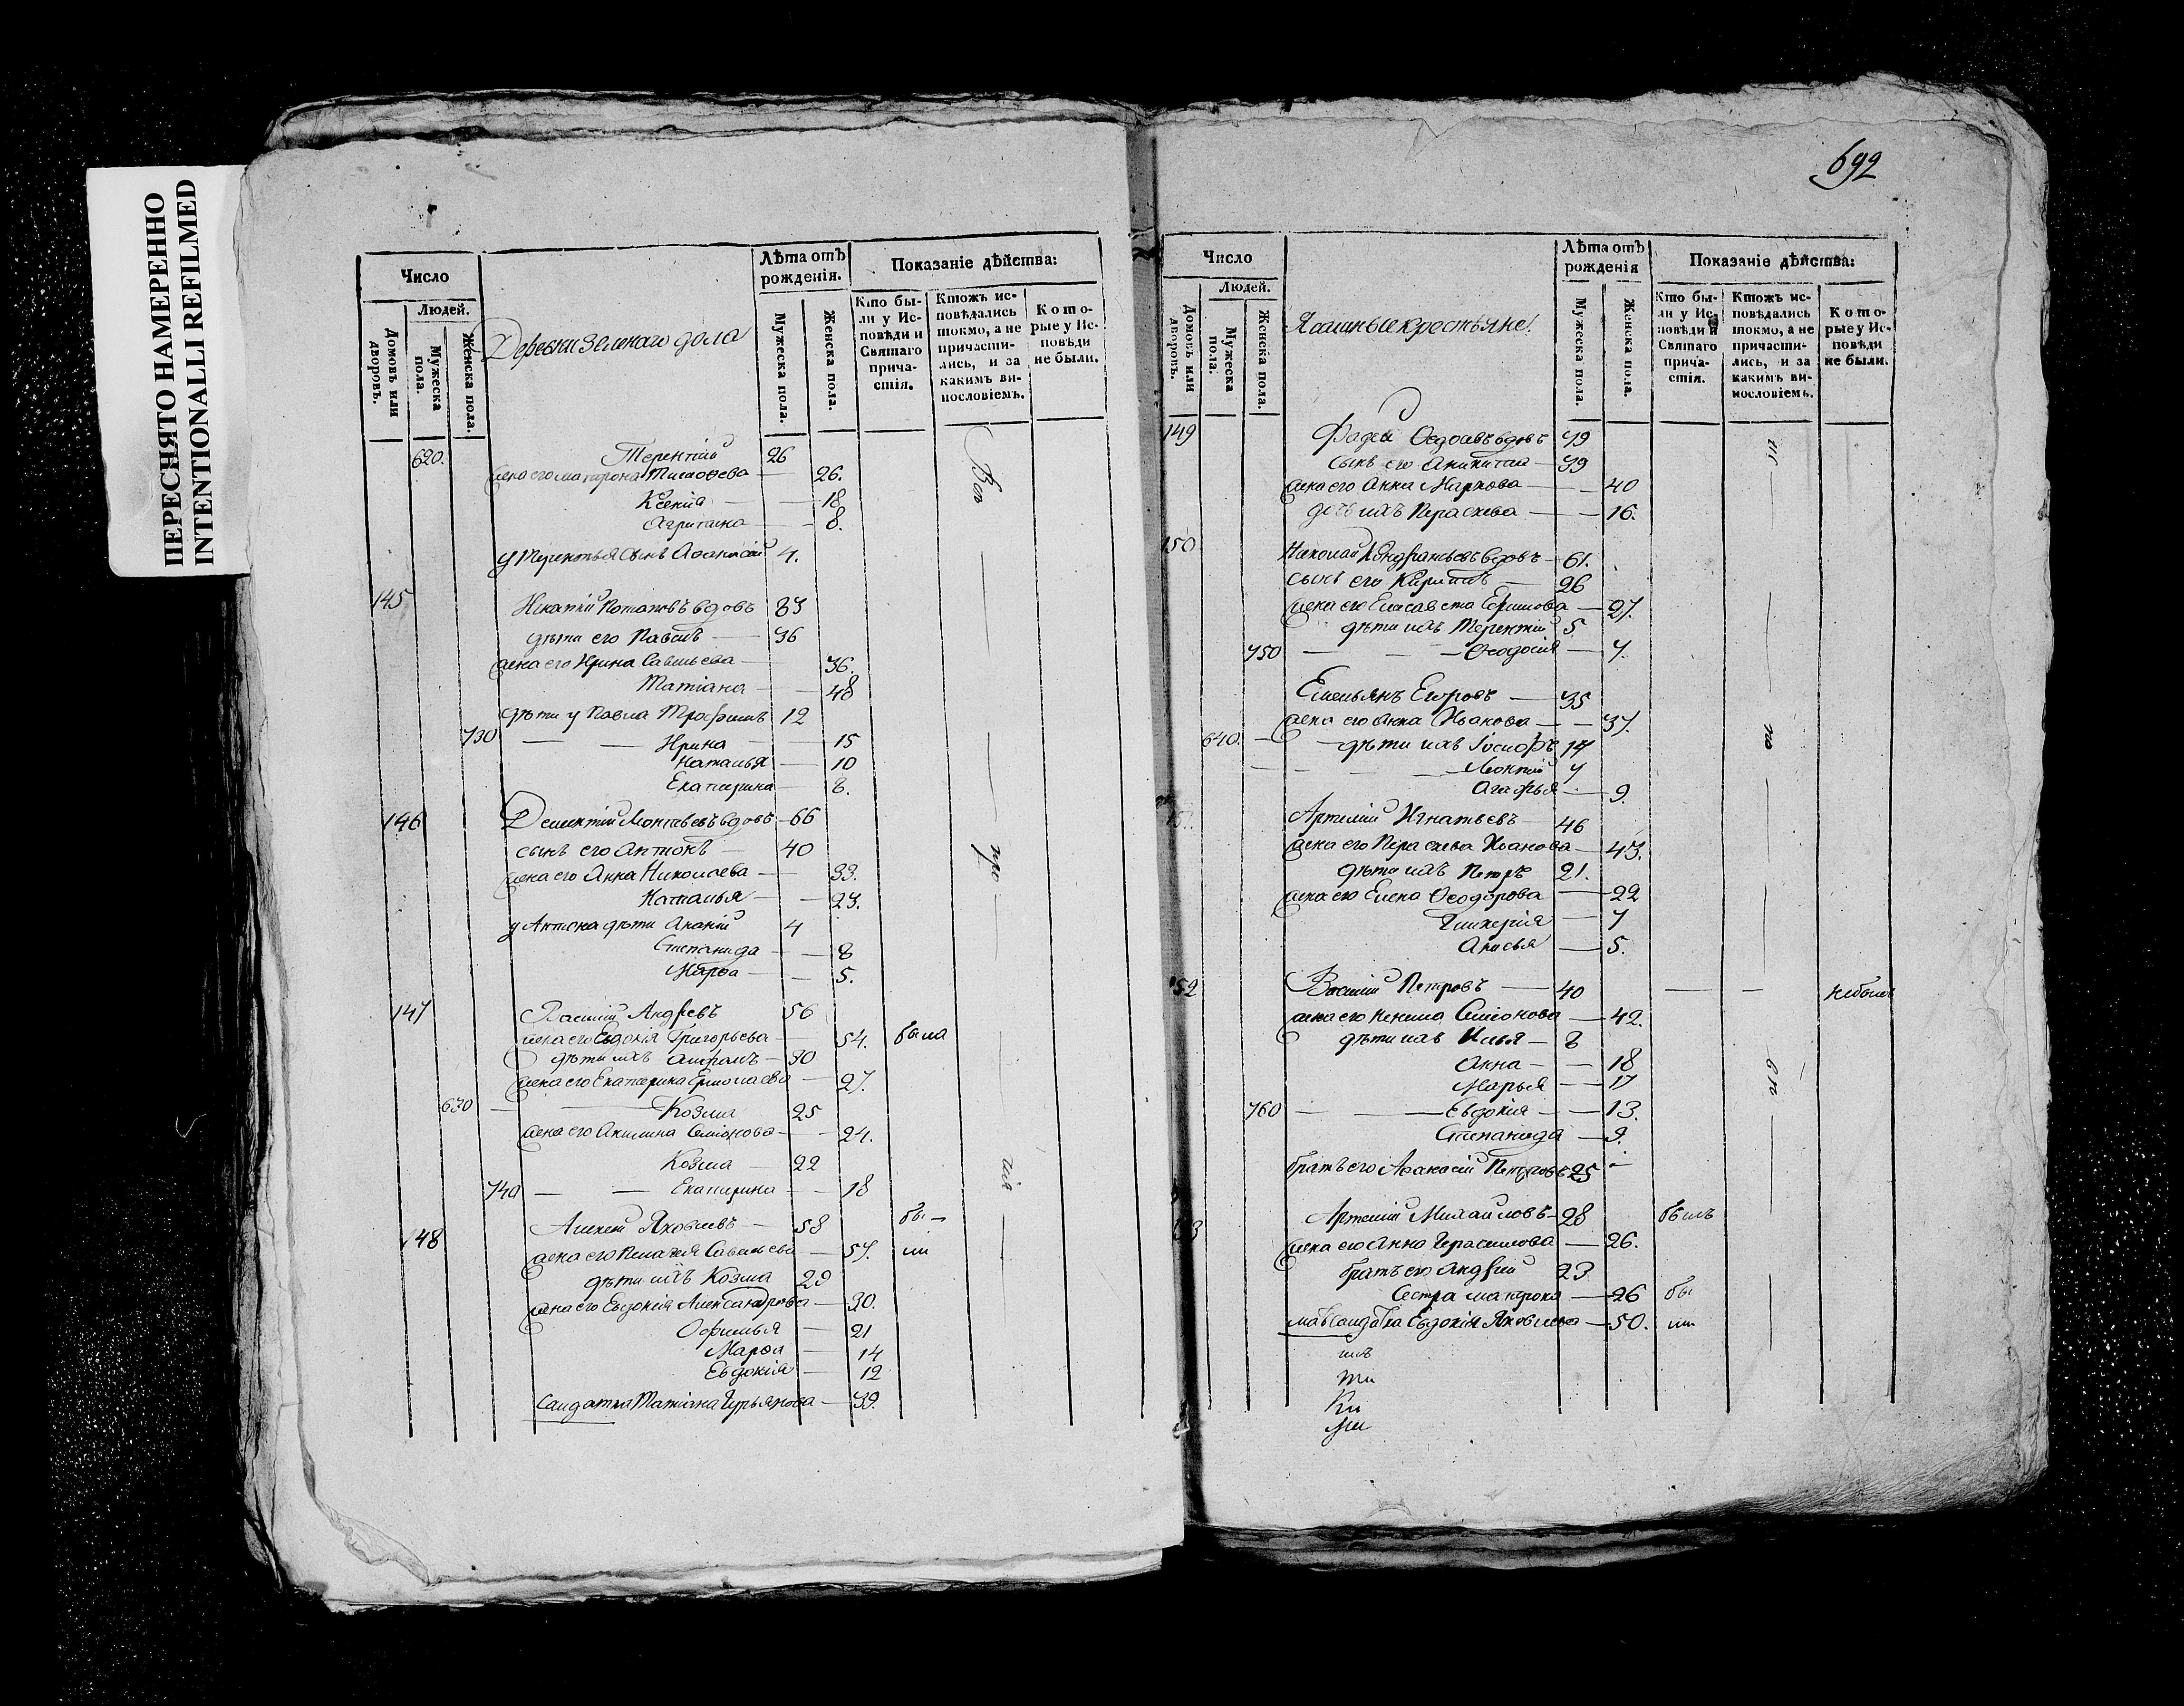 ПЕРЕСНЯТО НАМЕРЕННО
INTENTIONALLI REFILMED
Число
Людей.
Домовъ или дворовъ.
Мужеска пола.
Женска пола.
Деревни Зеленаго дола
Лѣта отъ рожденія.
Мужеска пола.
Женска пола.
Показаніе дѣйства:
Кто бы-
ли у Ис-
повѣди и
Святаго
прича-
стія.
Ктожъ ис-
повѣдались
токмо, а не
причасти-
лись, и за
какимъ ви-
нословіемъ.
Кото-
рые у Ис-
повѣди
не были.
620. Терентій 26
жена его Матрона Тимоѳеева 26.
Ксенія 18
Агрипина 8.
у Терентья сынъ Аѳанасій 4.
145 Потаповъ вдовъ 83
дѣти его Павелъ 36
жена его Ирина Савельева 36.
Татіана 48
дѣти у Павла Трофимъ 12
730 Ирина 15
Наталья 10
Екатерина 8.
146 Дементій Леонтьевъ вдовъ 66
сынъ его Антонъ 40
жена его Анна Николаева 33.
Наталья 23.
у Антона дѣти Ананій 4
Степанида 8
Марѳа 5.
147 Василій Андреевъ 56
жена его Евдокія Григорьева 54. была
дѣти ихъ 30
жена его Екатерина Ермолаева 27.
630 Козма 25
жена его Акилина Семіонова 24.
Козма 22
740 Екатерина 18
148 Алексей Яковлевъ 58 бы
жена его Пелагея Савельева 57. ли
дѣти ихъ Козма 29
жена его Евдокія Александрова 30.
Офимья 21
Марѳа 14
Евдокія 12
Салдатка Татіана Гурьянова 39.
Вси
про
692
Число
Людей.
Домовъ или дворовъ.
Мужеска пола.
Женска пола.
Ясашные крестьяне.
Лѣта отъ рожденія
Мужеска пола.
Женска пола.
Показаніе дѣйства:
Кто бы-
ли у Ис-
повѣди и
Святаго
прича-
стія.
Ктожъ ис-
повѣдались
токмо, а не
причасти-
лись, и за
какимъ ви-
нословіемъ.
Кото-
рые у Ис-
повѣди
не были.
149 Фадей вдовъ 79
сынъ его Аникита 39
жена его Анна Маркова 40
дочь ихъ Параскева 16.
150 Николай Кондратьевъ вдовъ 61.
сынъ его 26
жена его Елисавета Ефимова 27.
дѣти ихъ Терентій 5
750 Ѳеодосія 7.
Емельянъ Егоровъ 35
жена его Анна Иванова 37.
640. дѣти ихъ Іосифъ 14
Леонтій 7
Агафья 9.
Артемій Игнатьевъ 46
жена его Параскева Иванова 43.
дѣти ихъ Петръ 21.
жена его Елена Ѳеодорова 22
Гликерія 7
Анисья 5.
152 Василій Петровъ 40 не былъ
жена его Семіонова 42.
дѣти ихъ Илья 8
Анна 18
Марья 17
760 Евдокія 13.
Степанида 9.
братъ его Аѳанасій Петровъ 25
Артемій Михайловъ 28 былъ
жена его Анна Герасимова 26.
братъ его Андрей 23
Сестра Матрона 26 бы
Евдокія Яковлева 50. ли